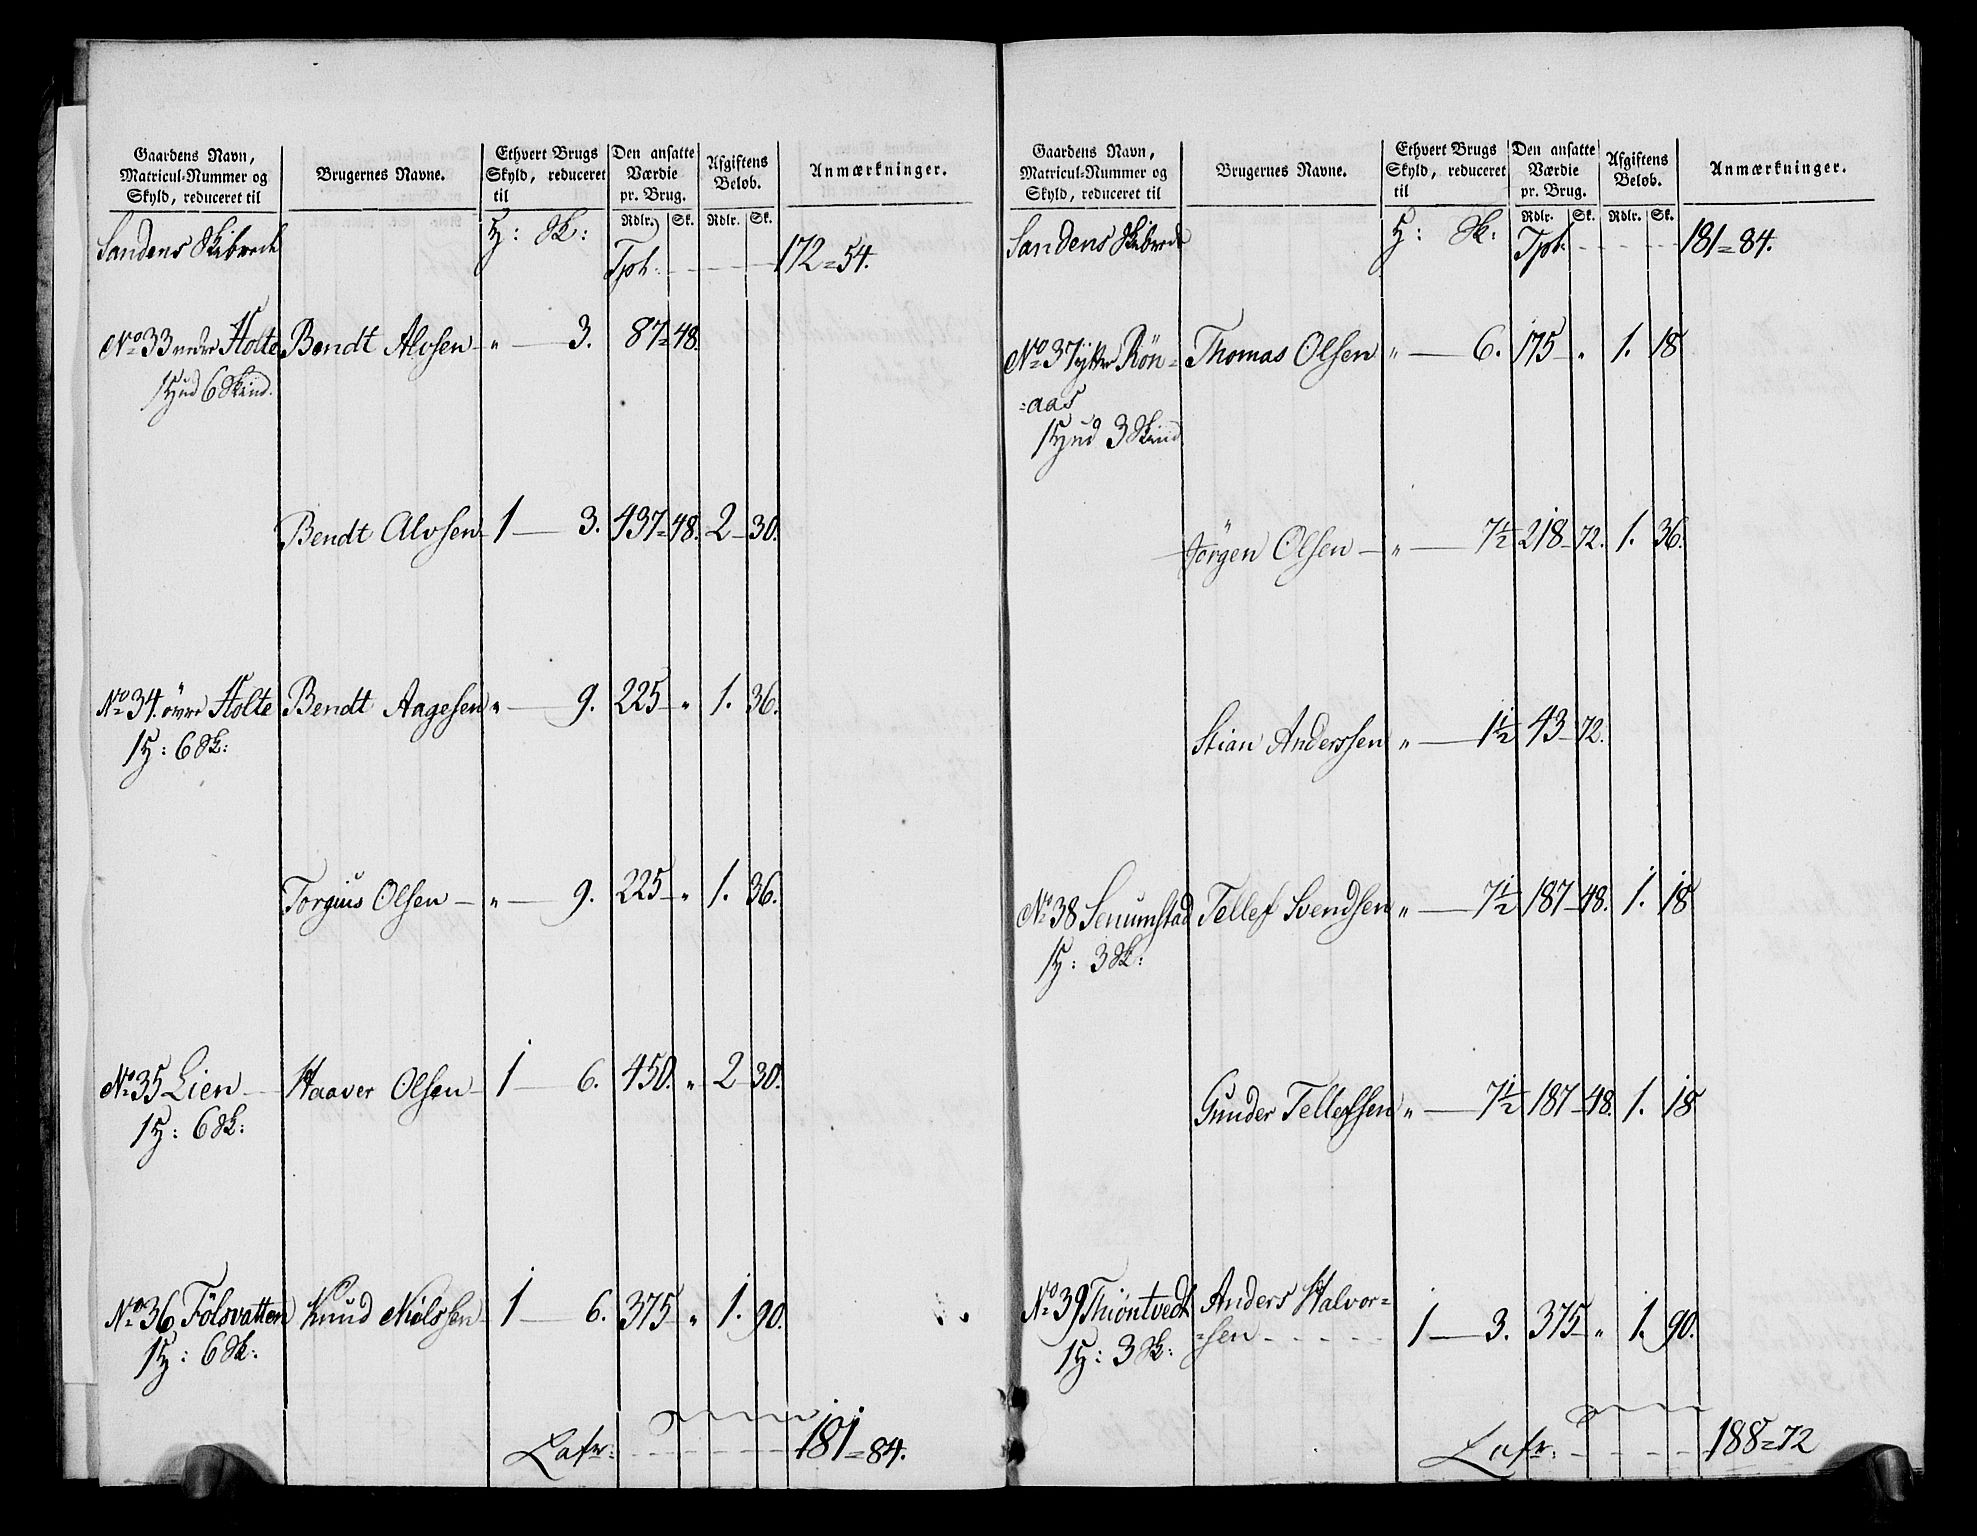 Gaardens Navn, Matricul-Nummer og Skyld, reduceret til | Brugernes Navne. | Ethvert Brugs Skyld, reduceret til | Den ansatte Værdie pr. Brug. | Afgiftens Beløb. | Anmærkninger.
H: Sk: | Rdlr. | Sk. | Rdlr. | Sk.
Sandens Skibrede | Tpt: - - - - 172 = 54.
No 33 nedre Holte | Bendt Alvsen - | „ — 3. | 87 = 48.
1 Hud 6 Skind.
Bendt Alvsen - | 1 — 3. | 437 = 48. | 2 - 30.
No 34. övre Holte | Bendt Aagesen | „ — 9. | 225 - „ | 1. 36.
1 H: 6 Sk:
Torgius Olsen — | „ — 9. | 225 - „ | 1. 36.
No 35 Lien — | Haaver Olsen - | 1 — 6. | 450. „ | 2 - 30.
1 H: 6 Sk:
No 36 Fölsvatten | Knud Nielssen - | 1 — 6. | 375 - „ | 1. 90.
1 H: 6 Sk:
Lafr: - - - - - 181 = 84.
Gaardens Navn, Matricul-Nummer og Skyld, reduceret til | Brugernes Navne. | Ethvert Brugs Skyld, reduceret til | Den ansatte Værdie pr. Brug. | Afgiftens Beløb. | Anmærkninger.
H: Sk: | Rdlr. | Sk. | Rdlr. | Sk.
Sandens Skibrede | Tpt: - - - - 181 = 84.
No 37 ytter Rön= | Thomas Olsen | „ — 6. | 175 - „ | 1. 18
=aas
1 Hud 3 Skind
Jörgen Olsen — | „ — 7½ | 218 - 72. | 1. 36.
Stian Anderssen | „ — 1½ | 43 - 72.
No 38 Senumstad | Tellef Svendsen | „ — 7½ | 187 - 48. | 1. 18
1 H: 3 Sk:
Gunder Tellefssen | „ — 7½ | 187 - 48. | 1. 18
No 39 Thiöntvedt | Anders Halvor=
=sen - - - - | 1 — 3. | 375 - „ | 1. 90.
1 H: 3 Sk:
Lafr: - - - - 188 = 72